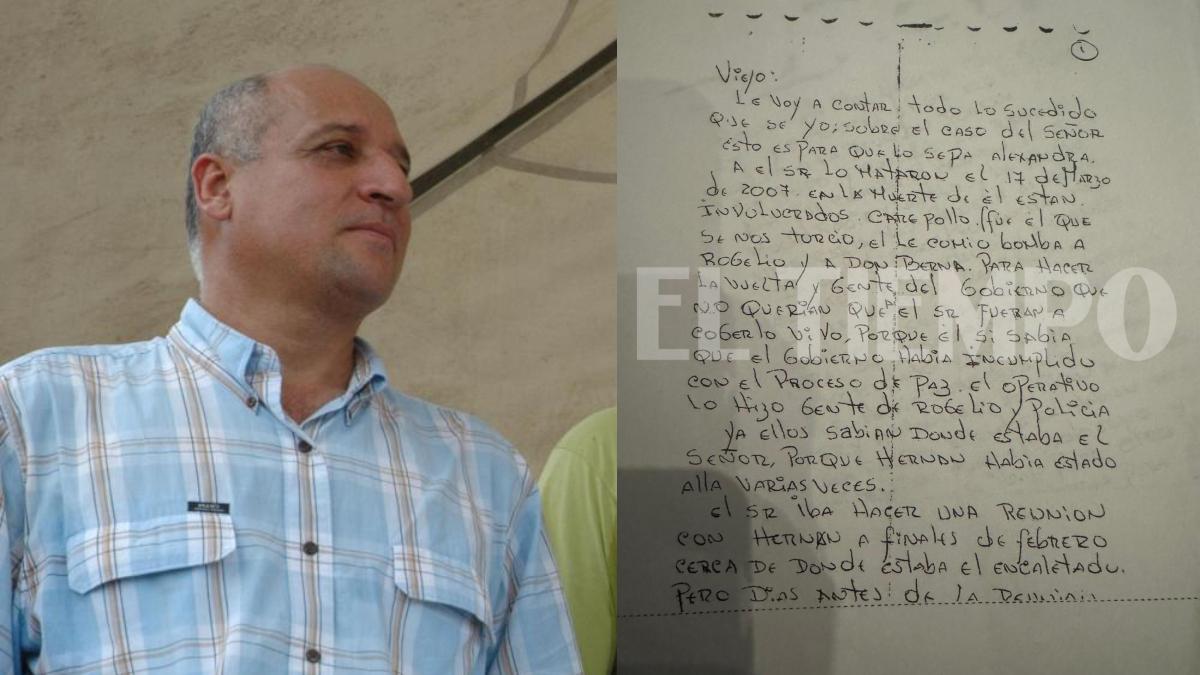 1
Viejo:
Le voy a contar todo lo sucedido
que se yo; sobre el caso del señor
esto es para que lo sepa Alexandra.
A el Sr lo mataron el 17 de Marzo
de 2007. en la muerte de él estan
involucrados. Carepollo. fue el que
se nos torcio, el le comio bomba a
Rogelio y a Don Berna. Para hacer
la vuelta y gente del gobierno que
no querian que el Sr fueran a
cogerlo vivo porque el si sabia
que el gobierno habia incumplido
con el proceso de paz. el operativo
lo hizo gente de Rogelio y policia
ya ellos sabian donde estaba el
señor, porque Hernan habia estado
alla varias veces.
el Sr iba hacer una reunion
con Hernan a finales de febrero
cerca de donde estaba el encaletado.
Pero dias antes de la reunion
EL TIEMPO